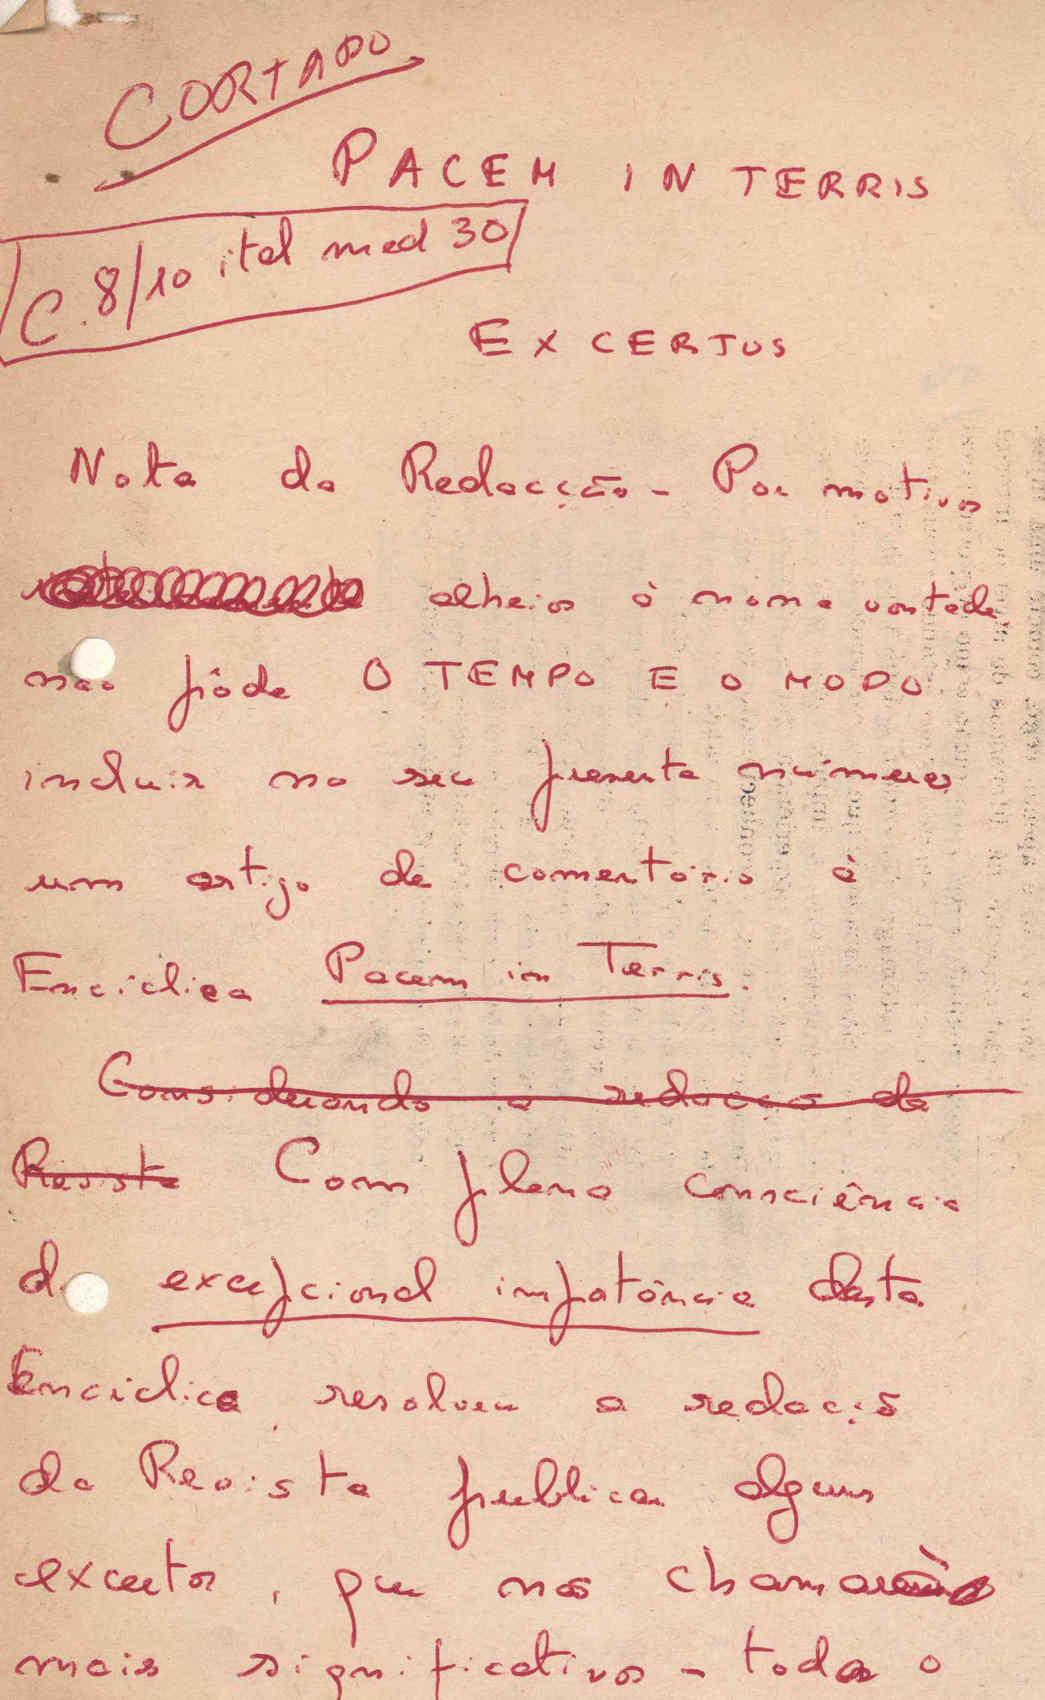 CORTADO
PACEM IN TERRIS
C. 8/10 ital med 30
EXCERTOS
Nota da Redacção - Por motivos
alheios à nossa vontade,
não pôde O TEMPO E O MODO
incluir no seu presente número
um artigo de comentário à
Encíclica Pacem in Terris.
Considerando a redacção da
Revista Com plena consciência
da excepcional importância desta
Encíclica resolveu a redacção
da Revista publicar alguns
excertos, que não chamará
mais significativos - toda o